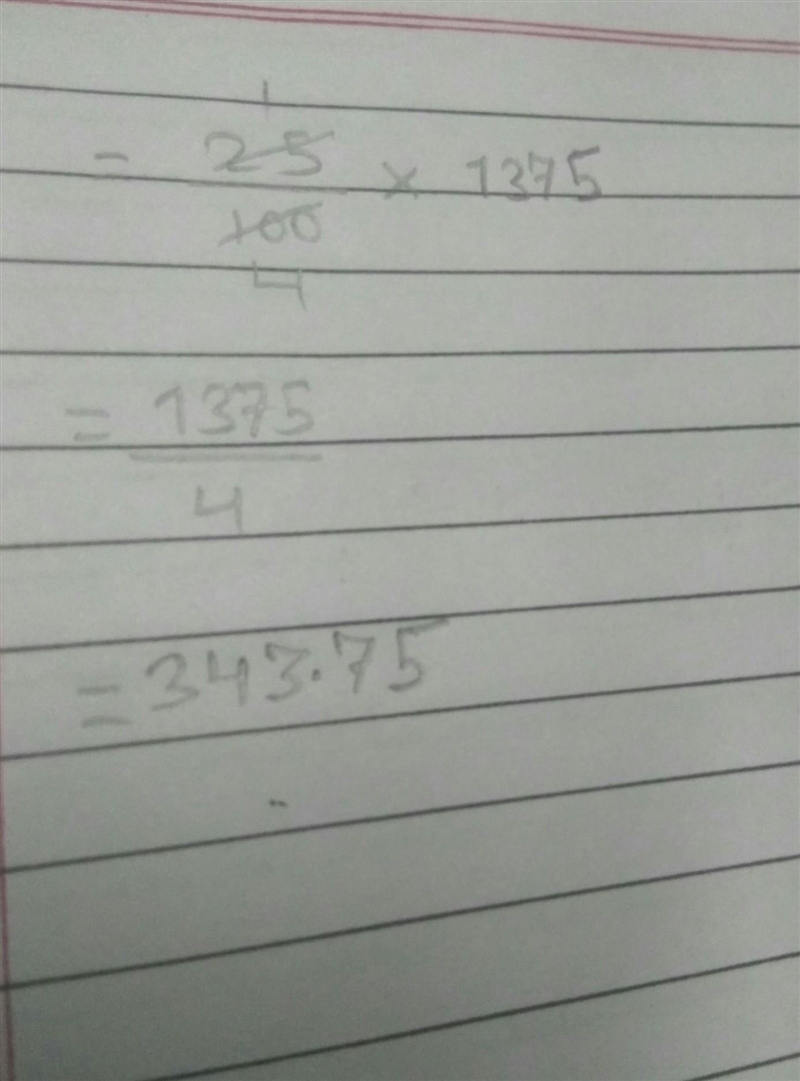 1
= 25/100 × 1375
4
= 1375/4
= 343.75